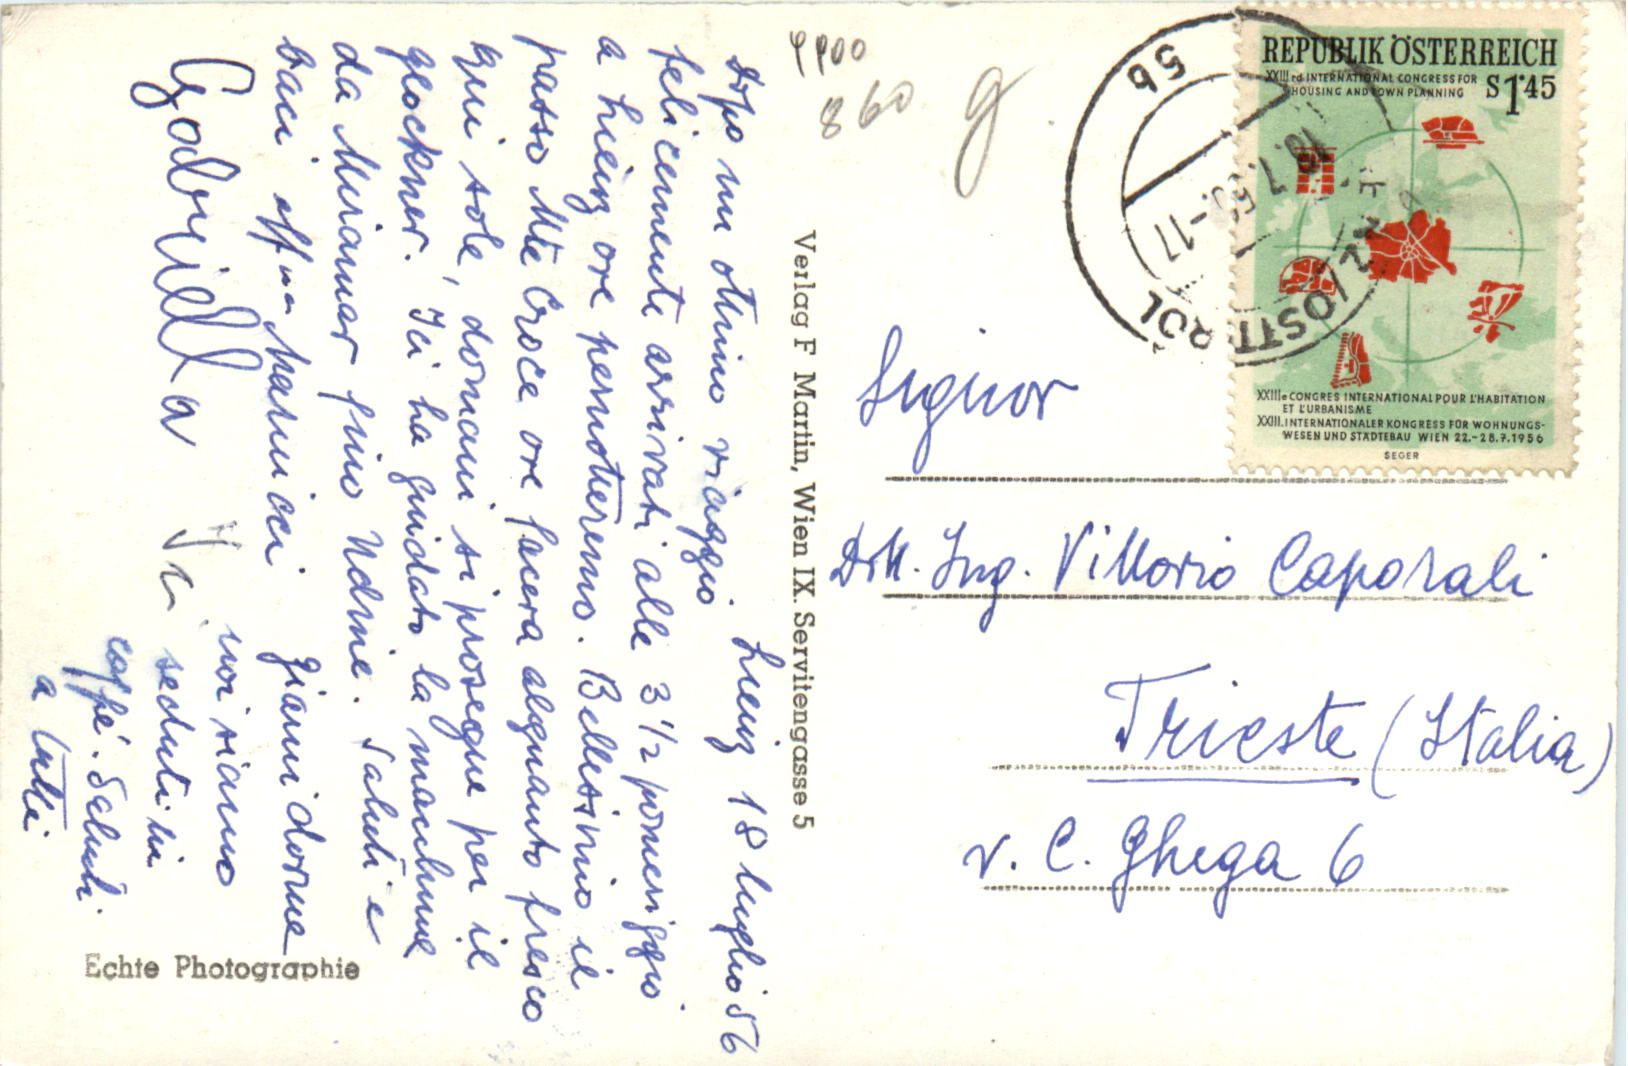 Lienz 18 luglio 56
Dopo un ottimo viaggio
felicemente arrivati alle 3 1/2 pomeriggio
a Lienz ove pernotteremo. Bellissimo il
passo Mte Croce ove faceva alquanto fresco
qui sole, domani si prosegue per il
glockner. Ici ha guidato la macchina
da Miramar fino Udine. Saluti e
baci
Gabriella
noi siamo
seduti in
caffè. Saluti
a tutti
Echte Photographie
Verlag F Martin, Wien IX. Servitengasse 5
9900
860
g
56
LIENZ / OSTTIROL
REPUBLIK ÖSTERREICH
XXIII rd INTERNATIONAL CONGRESS FOR
HOUSING AND TOWN PLANNING
S 1·45
XXIIIe CONGRES INTERNATIONAL POUR L'HABITATION
ET L'URBANISME
XXIII. INTERNATIONALER KONGRESS FÜR WOHNUNGS-
WESEN UND STÄDTEBAU WIEN 22.-28.7.1956
SEGER
Signor
Dott. Ing. Vittorio Caporali
Trieste (Italia)
v. C. Ghega 6